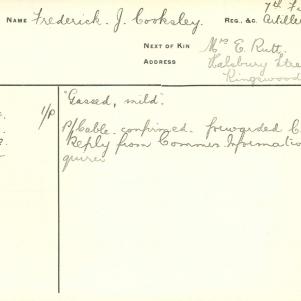 NAME Frederick. J. Cooksley. REG., &C. 7th Fi
Artille
NEXT OF KIN Mrs E. Rutt.
ADDRESS Halsbury Stre
Kingswood
1/P "Gassed, mild".
P/Cable confirmed. forwarded C
Reply from Commns Informatio
quiries